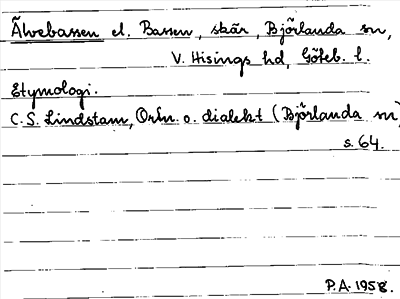 Älvebassen el. Bassen, skär, Björlanda sn,
V. Hisings hd, Göteb. l.
Etymologi.
C.S. Lindstam, Ortn. o. dialekt (Björlanda sn)
s. 64.
P.A. 1958.